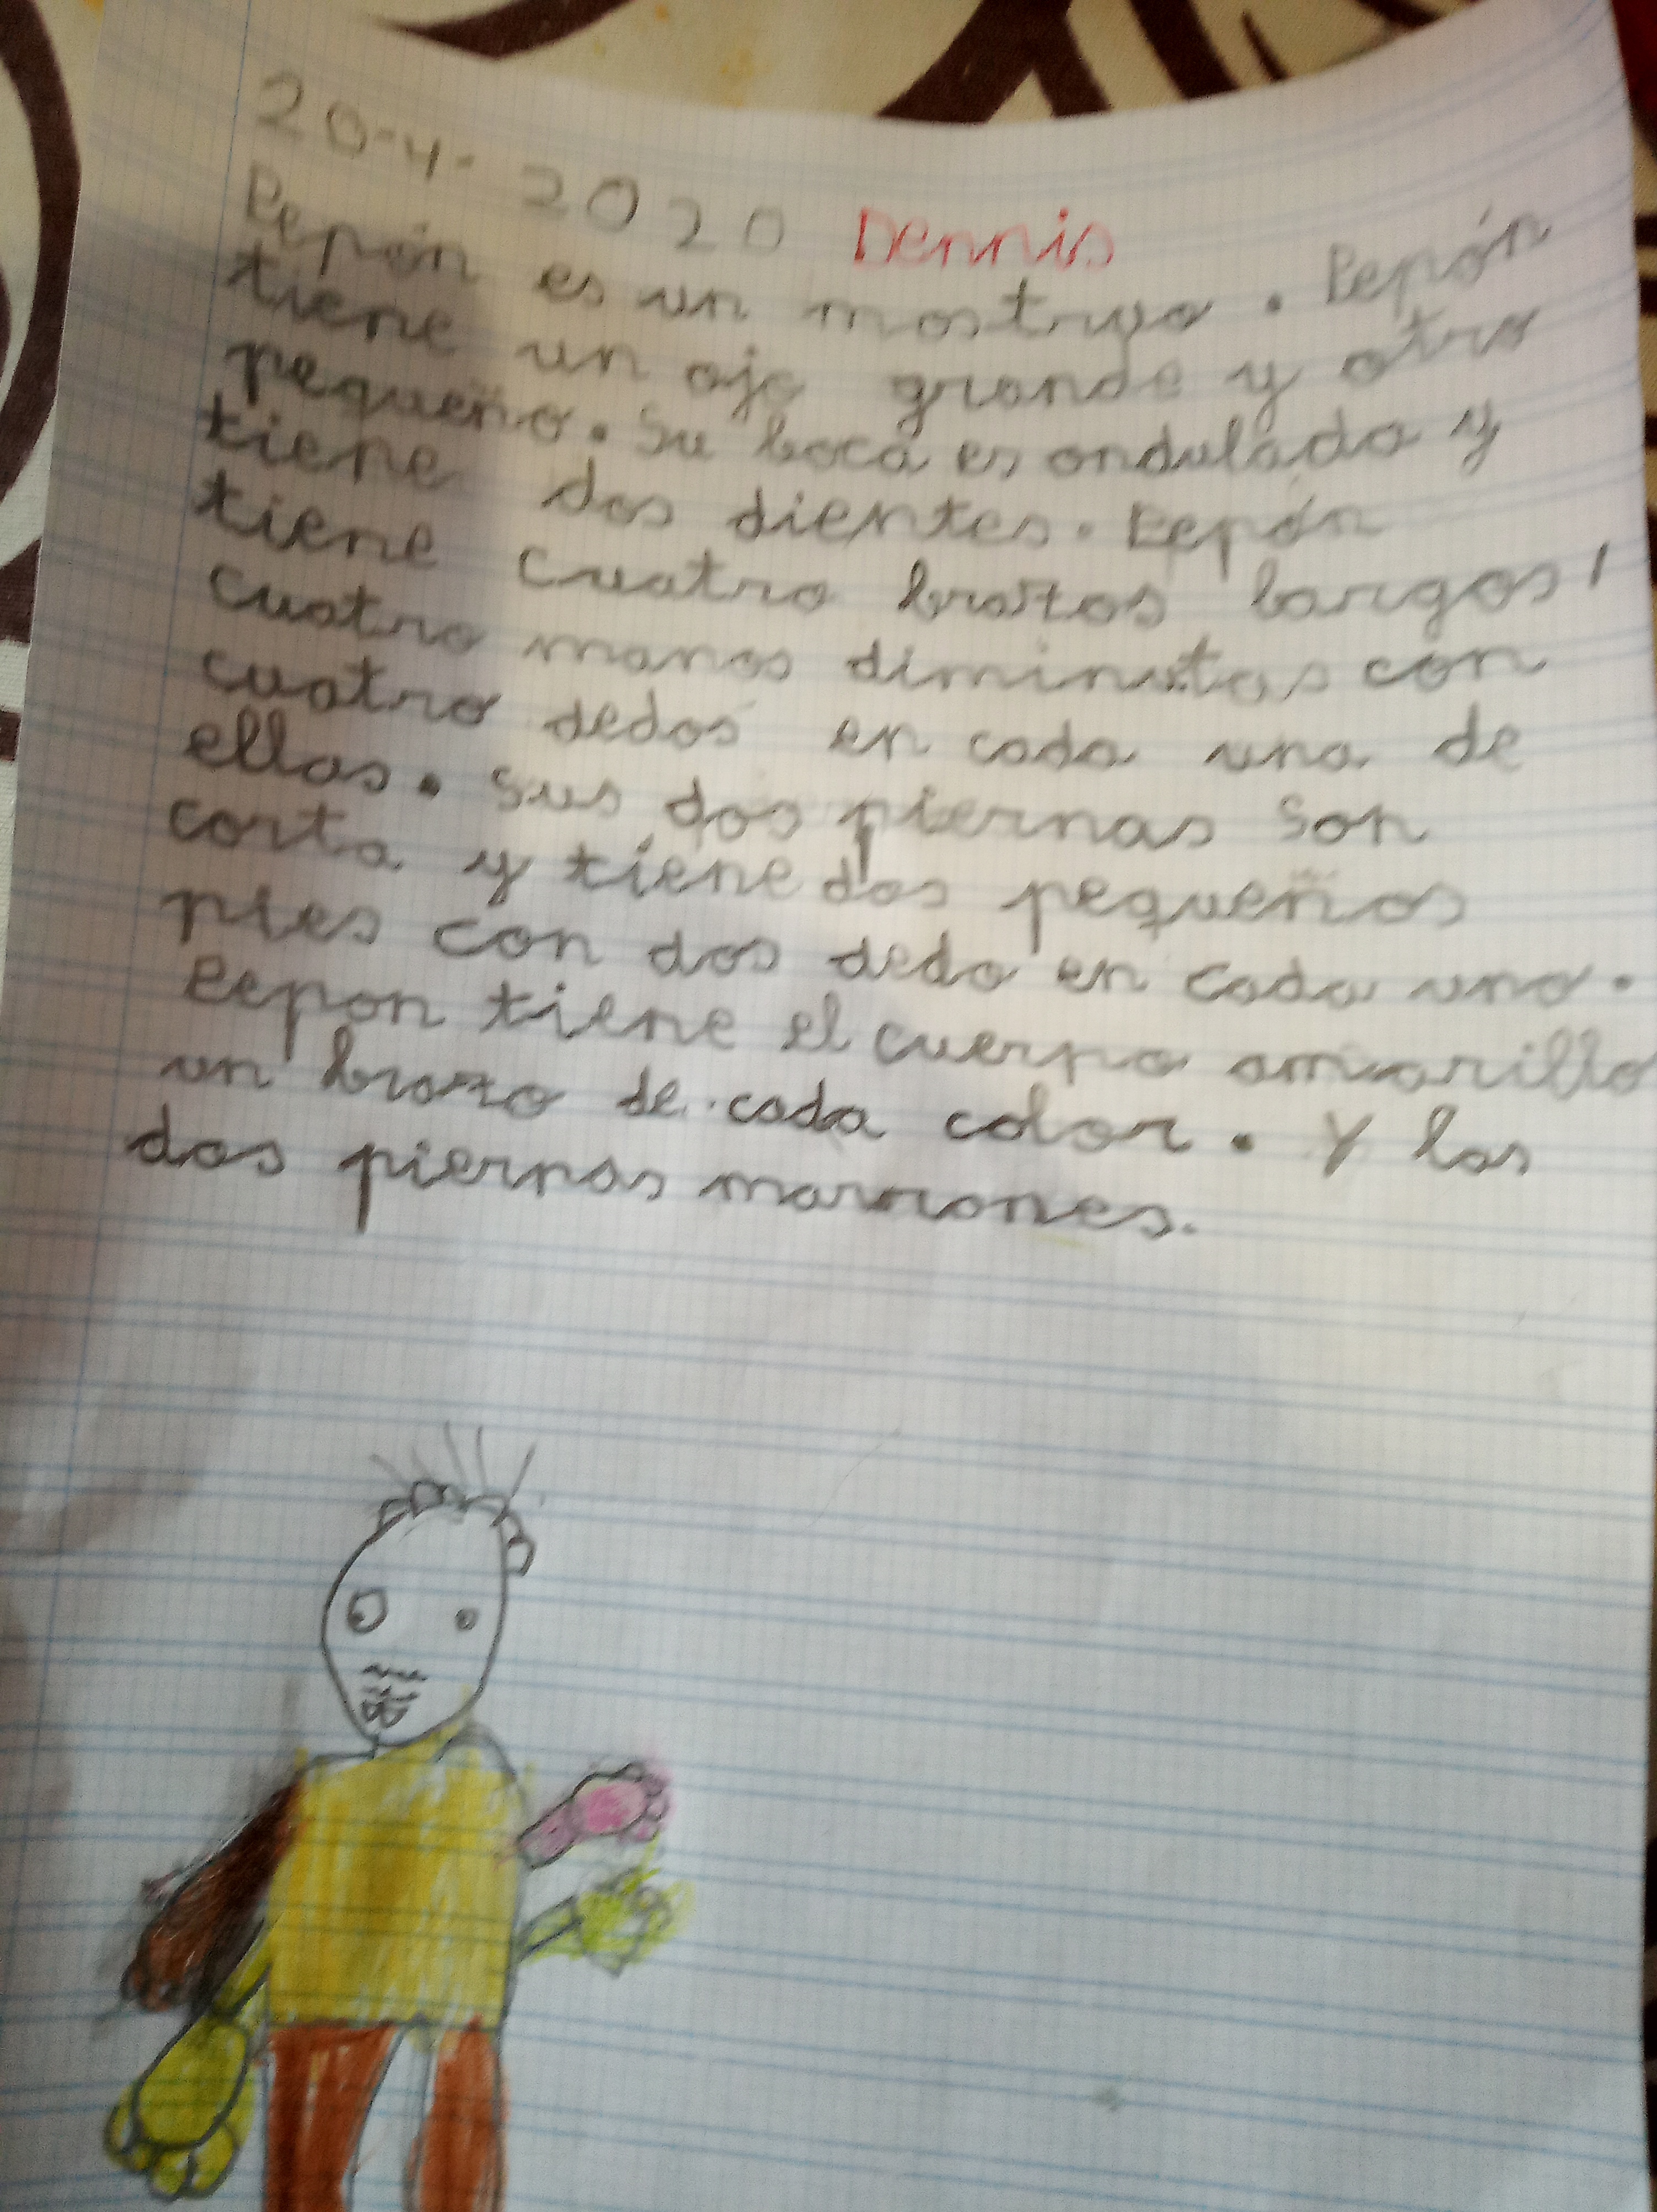 20-4-2020 Dennis
Pepón es un mostruo. Pepón
tiene un ojo grande y otro
pequeño. Su boca es ondulada y
tiene dos dientes. Pepón
tiene cuatro brazos largos,
cuatro manos diminutas con
cuatro dedos en cada una de
ellas. Sus dos piernas son
corta y tiene dos pequeños
pies con dos dedo en cada uno.
Pepon tiene el cuerpo amarillo
un brazo de cada color. Y las
dos piernas marrones.